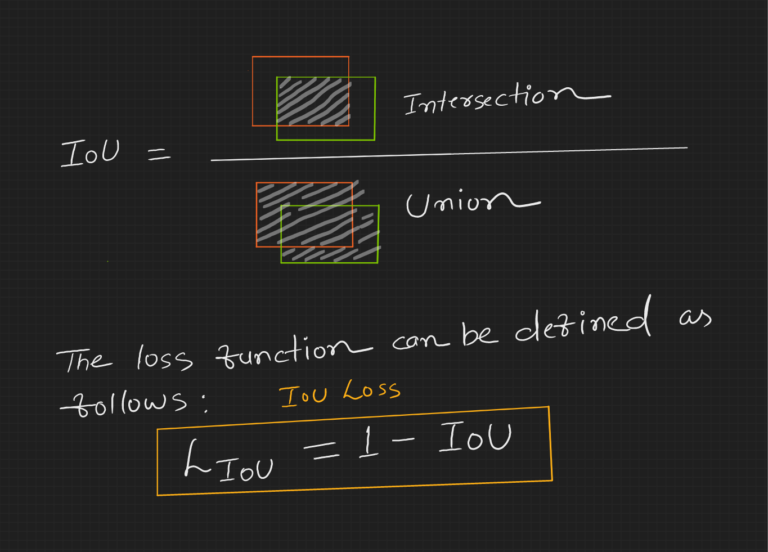 Intersection
IoU =
Union
The loss function can be defined as
follows:
IoU Loss
L_IoU = 1 - IoU